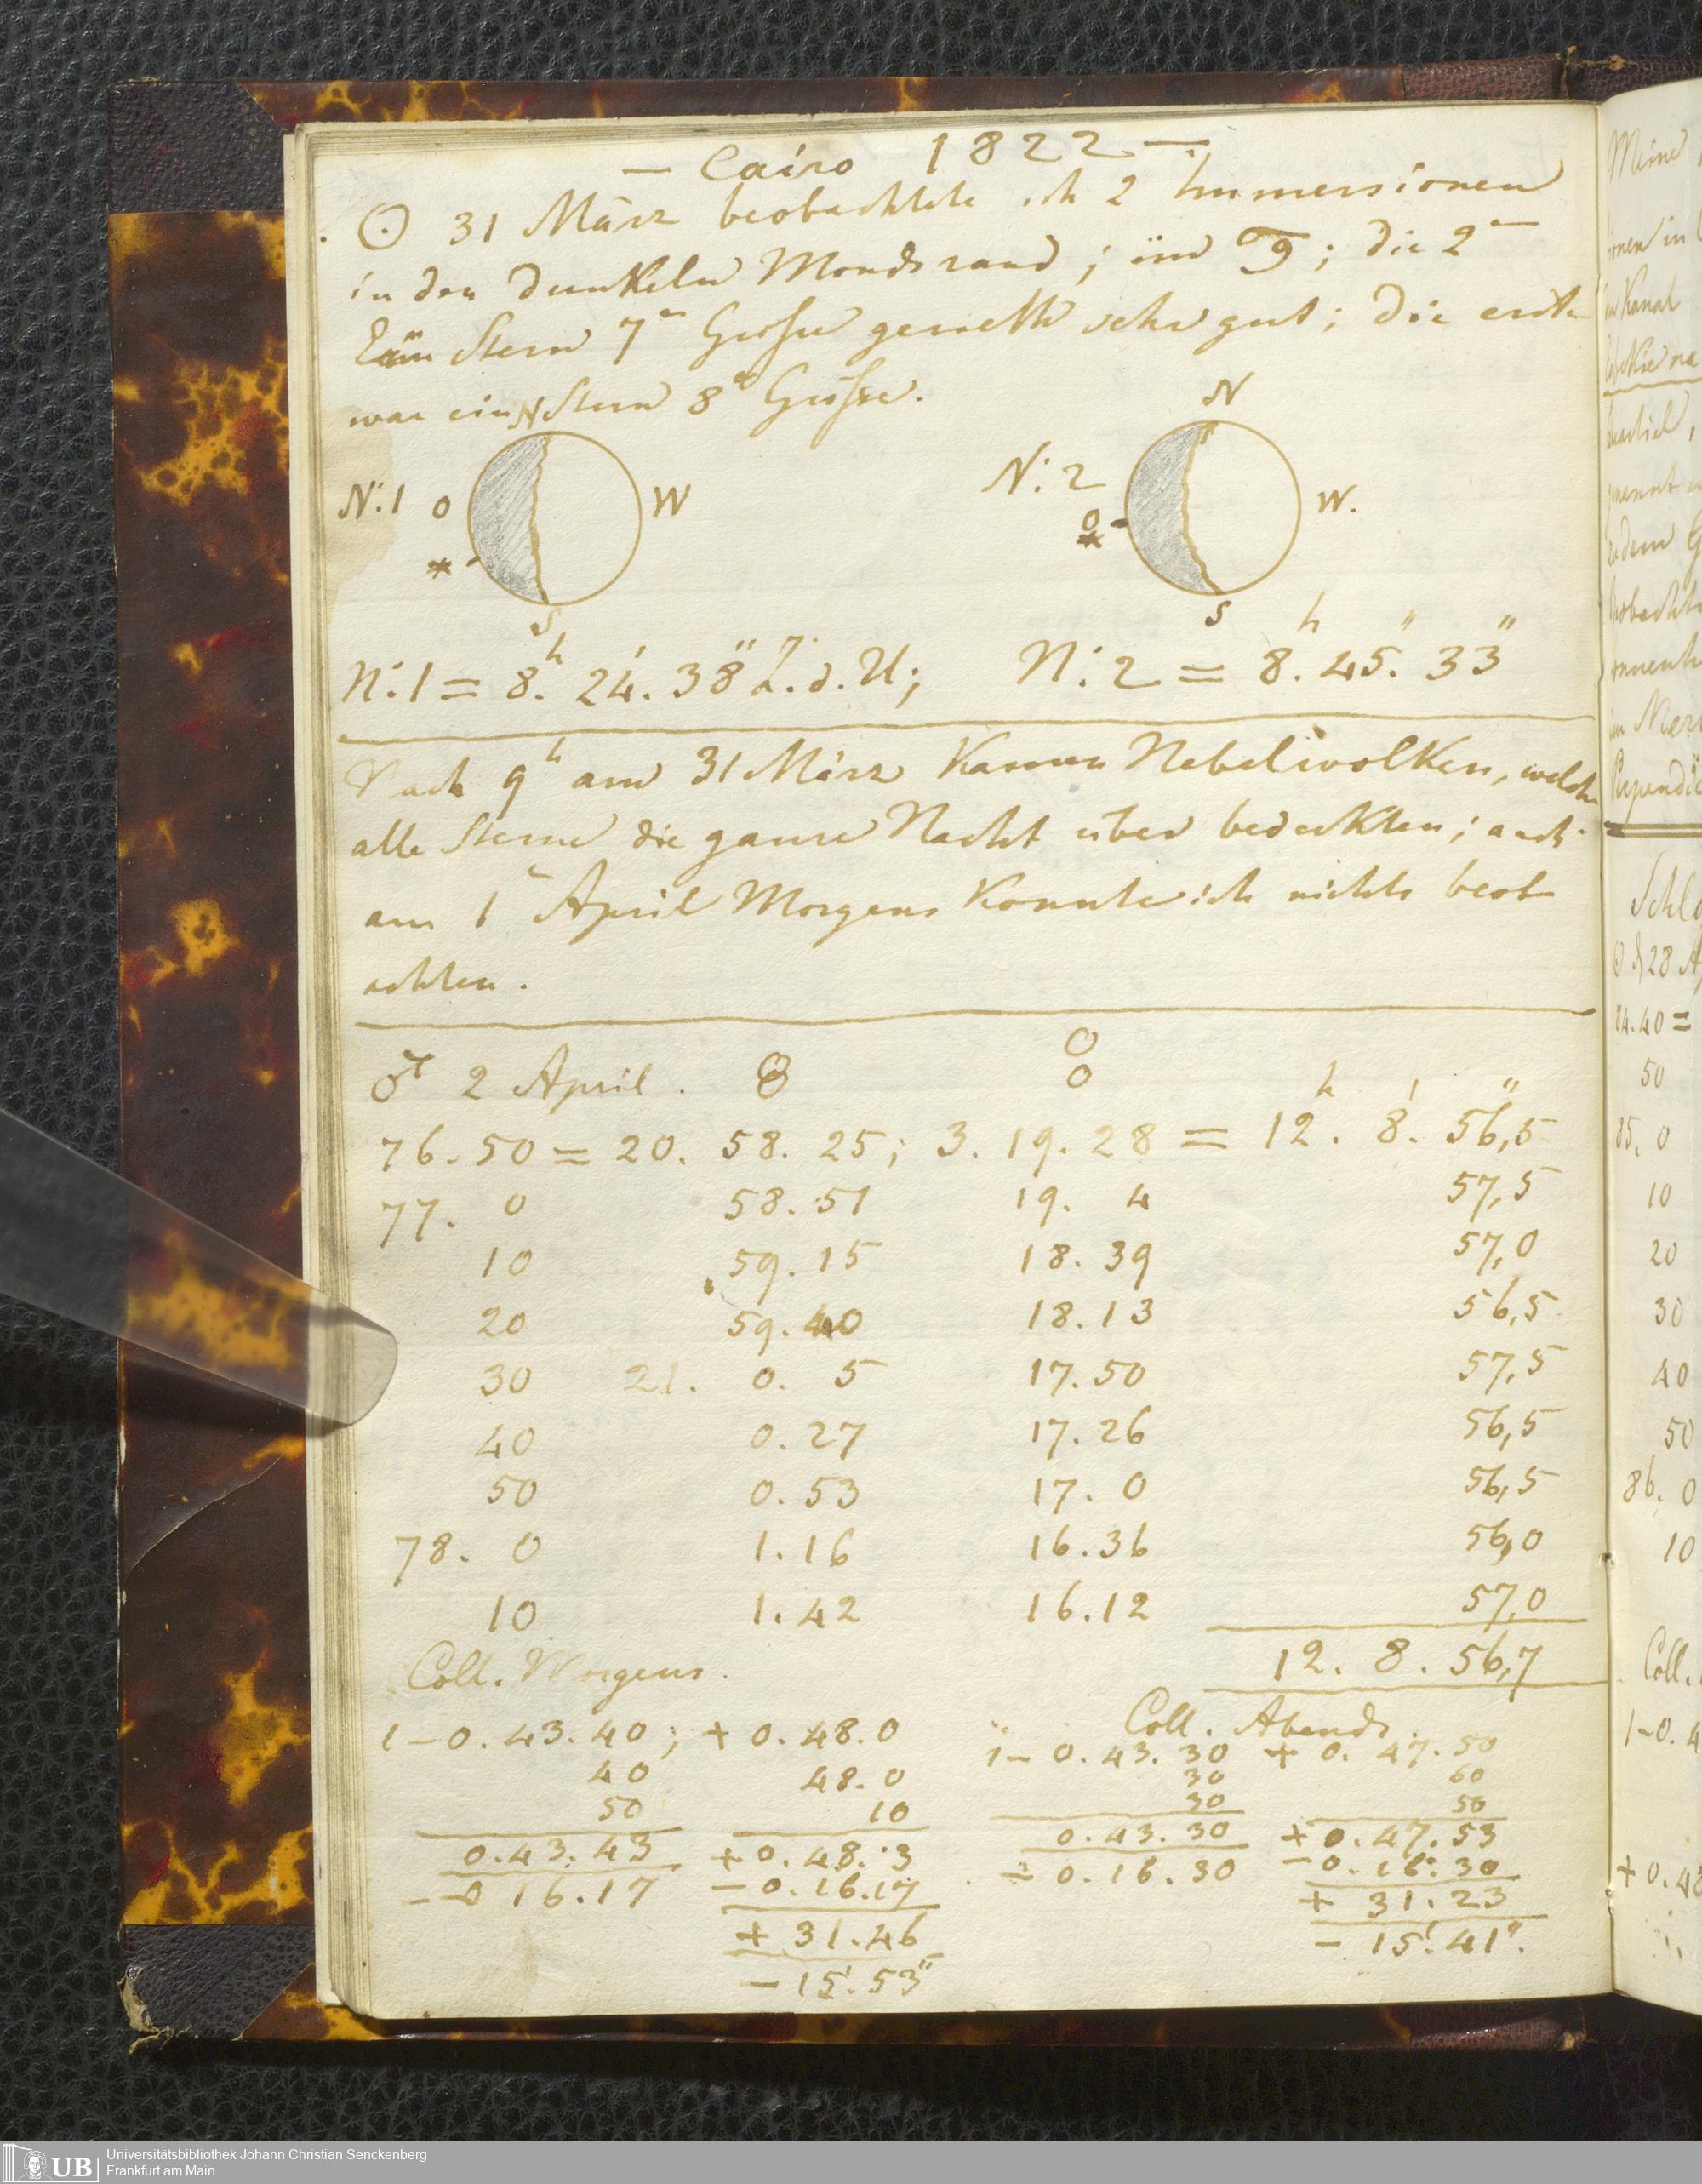 — Cairo 1822 —
☉ 31 März beobachtete ich 2 Immersionen
in den dunkeln Mondsrand; im ♋; die 2te
Ein Stern 7r Größe gerieth sehr gut; die erste
war ein Stern 8r Größe.
N N
N: 1 O W N: 2 O W.
* *
S S
N: 1 = 8h. 24'. 38" Z. d. U; N: 2 = 8h. 45". 33"
Nach 9h am 31 März kamen Nebelwolken, welche
alle Sterne die ganze Nacht über bedeckten; auch
am 1n April Morgens konnte ich nichts beob
achten.
♂ 2 April.
76. 50 = 20. 58. 25; 3. 19. 28 = 12h. 8'. 56",5
77. 0 58. 51 19. 4 57,5
10 59. 15 18. 39 57,0
20 59. 40 18. 13 56,5
30 21. 0. 5 17. 50 57,5
40 0. 27 17. 26 56,5
50 0. 53 17. 0 56,5
78. 0 1. 16 16. 36 56,0
10 1. 42 16. 12 57,0
Coll. Morgens. 12. 8. 56,7
Coll. Abends.
1 – 0. 43. 40; + 0. 48. 0 1 – 0. 43. 30 + 0. 47. 50
40 48. 0 30 60
50 10 30 50
0. 43. 43 + 0. 48. 3 0. 43. 30 + 0. 47. 53
– 0 16. 17 – 0. 16. 17 – 0. 16. 30 – 0. 16. 30
+ 31. 46 + 31. 23
– 15'. 53" – 15'. 41".
Meine
Kanal
Schlo
☉ d 28 A
84. 40 =
50
85. 0
10
20
30
40
50
86. 0
10
Coll.
1 – 0. 4
+ 0. 48
UB Universitätsbibliothek Johann Christian Senckenberg
Frankfurt am Main